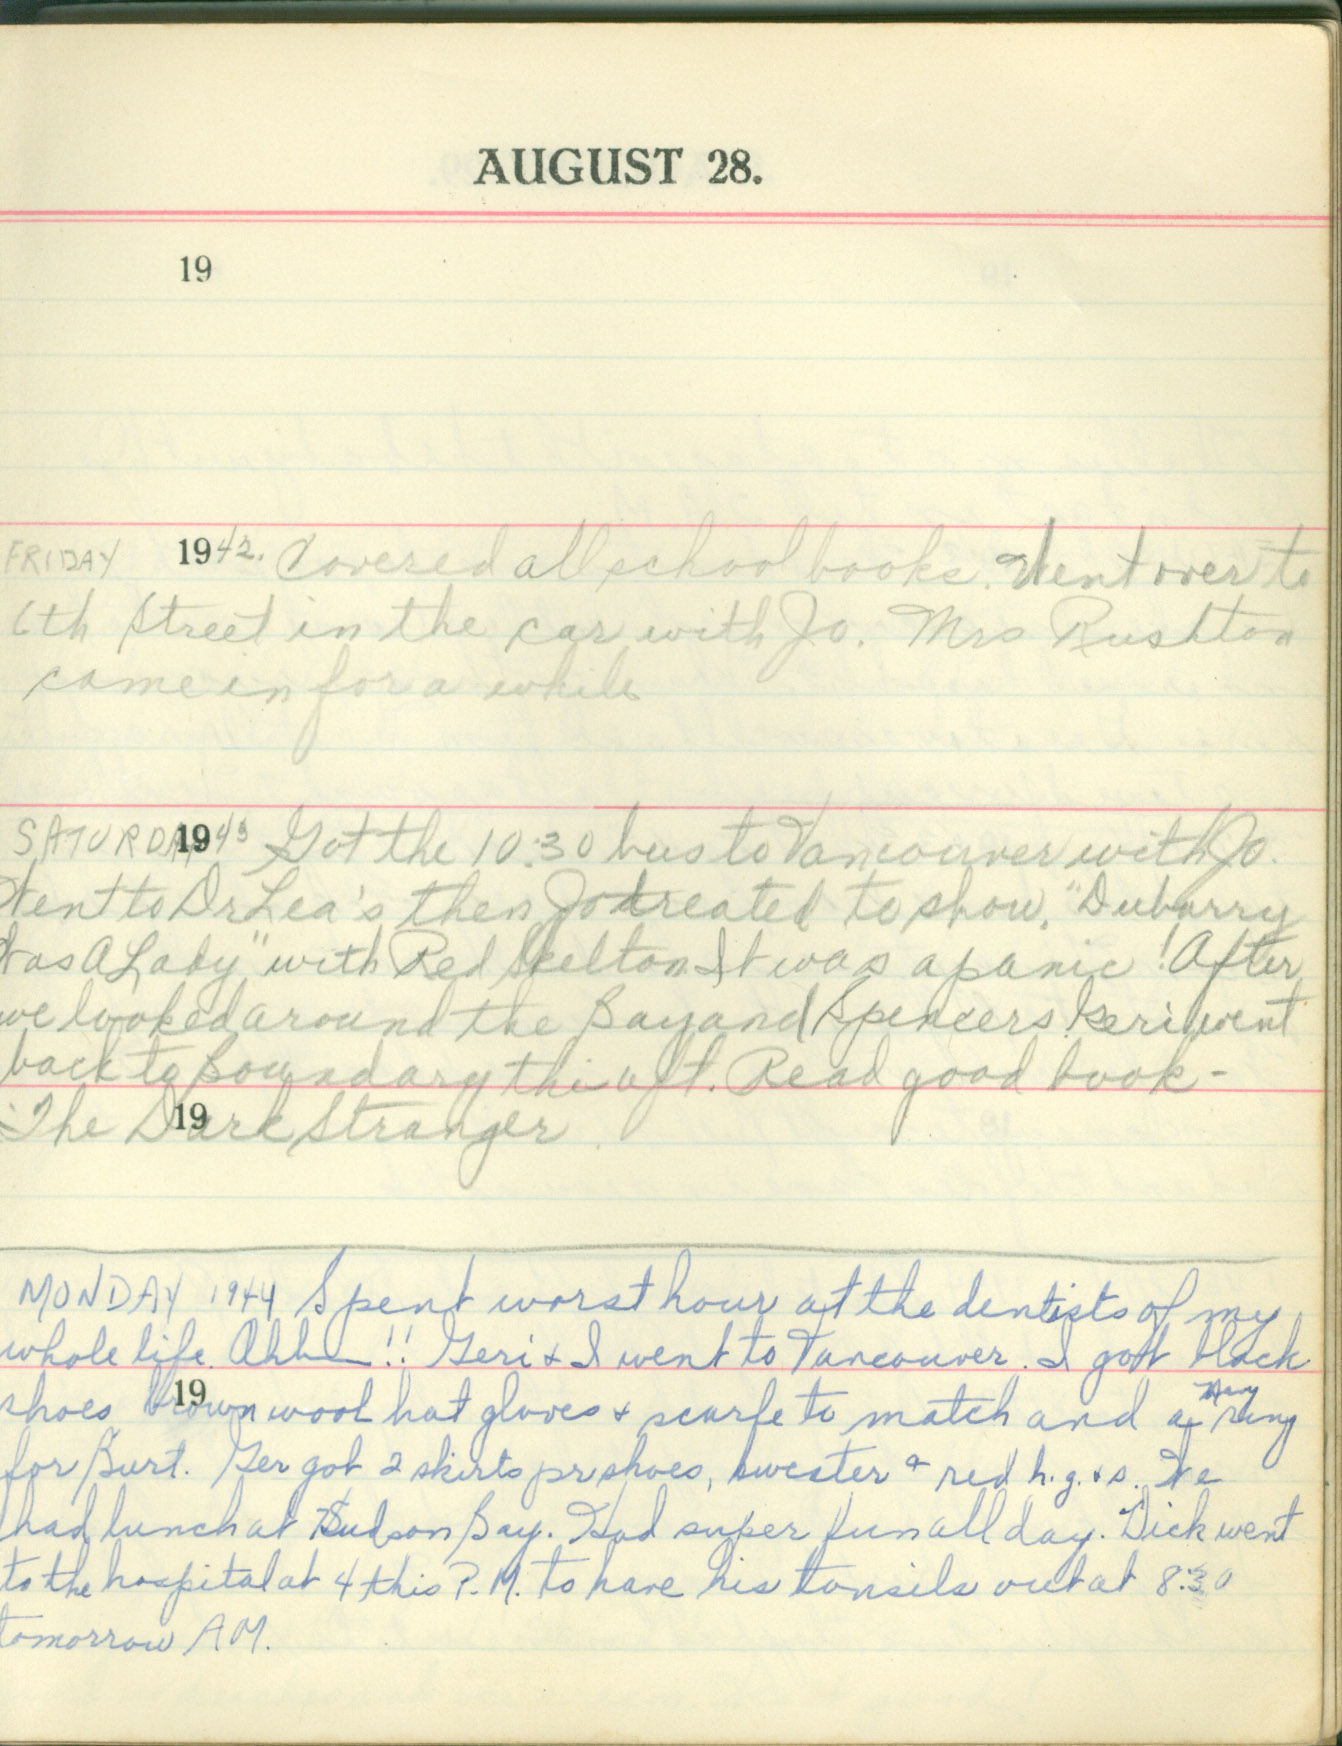 AUGUST 28.
19
FRIDAY 1942. Covered all school books. Went over to
6th Street in the car with Jo. Mrs Rushton
came in for a while
SATURDAY 1943 Got the 10:30 bus to Vancouver with Jo.
Went to Dr Lea's then Jo treated to show. "Dubarry
Was A Lady" with Red Skelton It was a panic! After
we looked around the Bay and Spencers. Geri went
back to Boundary this aft. Read good book -
19
The Dark Stranger
MONDAY 1944 Spent worst hour at the dentists of my
whole life. Ahh !! Geri & I went to Vancouver. I got black
19
shoes brown wool hat gloves & scarfe to match and a Navy ring
for Burt. Ger got 2 skirts pr shoes, sweater & red h.g. & s. We
had lunch at Hudson Bay. Had super fun all day. Dick went
to the hospital at 4 this P.M. to have his tonsils out at 8:30
tomorrow AM.